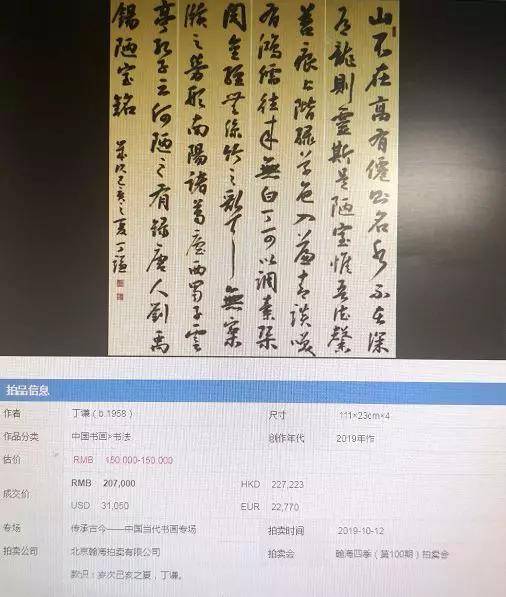 山不在高有僊則名水不在深
有龍則靈斯是陋室惟吾德馨
苔痕上階綠草色入簾青談笑
有鴻儒往來無白丁可以調素琴
閱金經無絲竹之亂耳無案
牘之勞形南陽諸葛廬西蜀子雲
亭孔子云何陋之有錄唐人劉禹
錫陋室銘
歲次己亥之夏丁謙
拍品信息
作者 丁谦（b.1958） 尺寸 111×23cm×4
作品分类 中国书画>书法 创作年代 2019年作
估价 RMB 150,000-150,000
成交价 RMB 207,000 HKD 227,223
USD 31,050 EUR 22,770
专场 传承古今——中国当代书画专场 拍卖时间 2019-10-12
拍卖公司 北京翰海拍卖有限公司 拍卖会 翰海四季（第100期）拍卖会
款识：岁次己亥之夏，丁谦。